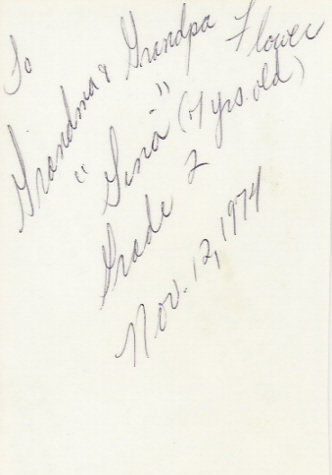 To
Grandma & Grandpa Flower
"Gina" (7 yrs. old)
Grade 2
Nov. 12, 1974